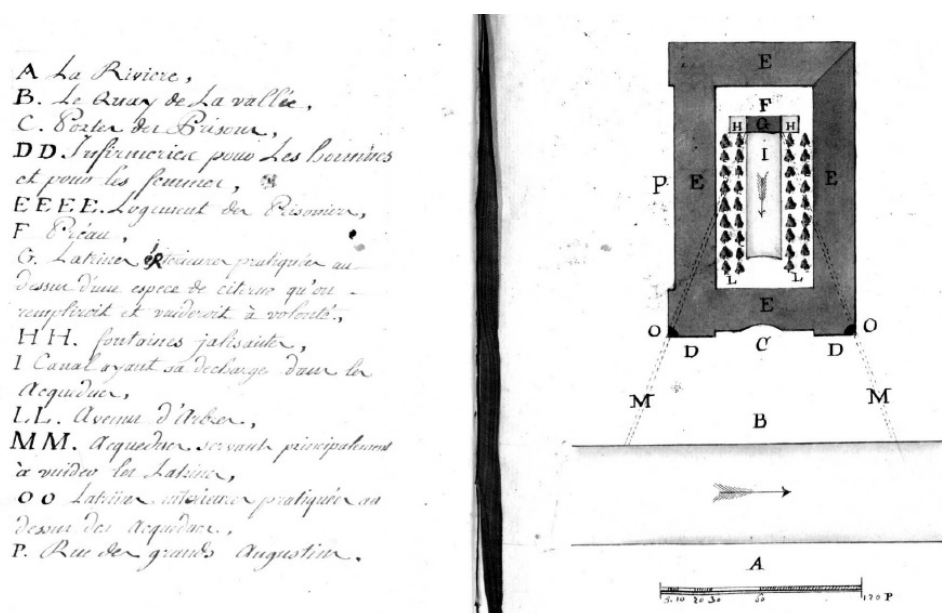 A La Riviere,
B. Le Quay de La vallée,
C. Portes des Prisons,
DD. Infirmeries pour Les hommes
et pour les femmes,
EEEE. Logement des Prisoniers,
F Préau,
G. Latrines pratiquées au
dessus d'une espece de citerne qu'on
rempliroit et vuideroit à volonté,
HH. fontaines jalisantes,
I Canal ayant sa decharge dans les
Acqueducs,
LL. Avenues d'Arbres,
MM. Acqueducs servants principalement
à vuider les Latrines,
OO Latrines interieures pratiquées au
dessus des Acqueducs,
P. Rue des grands Augustins.
E
F
H G H
I
P E E
L L
E
O O
D C D
M M
B
A
5. 10 20 30 60 120 P